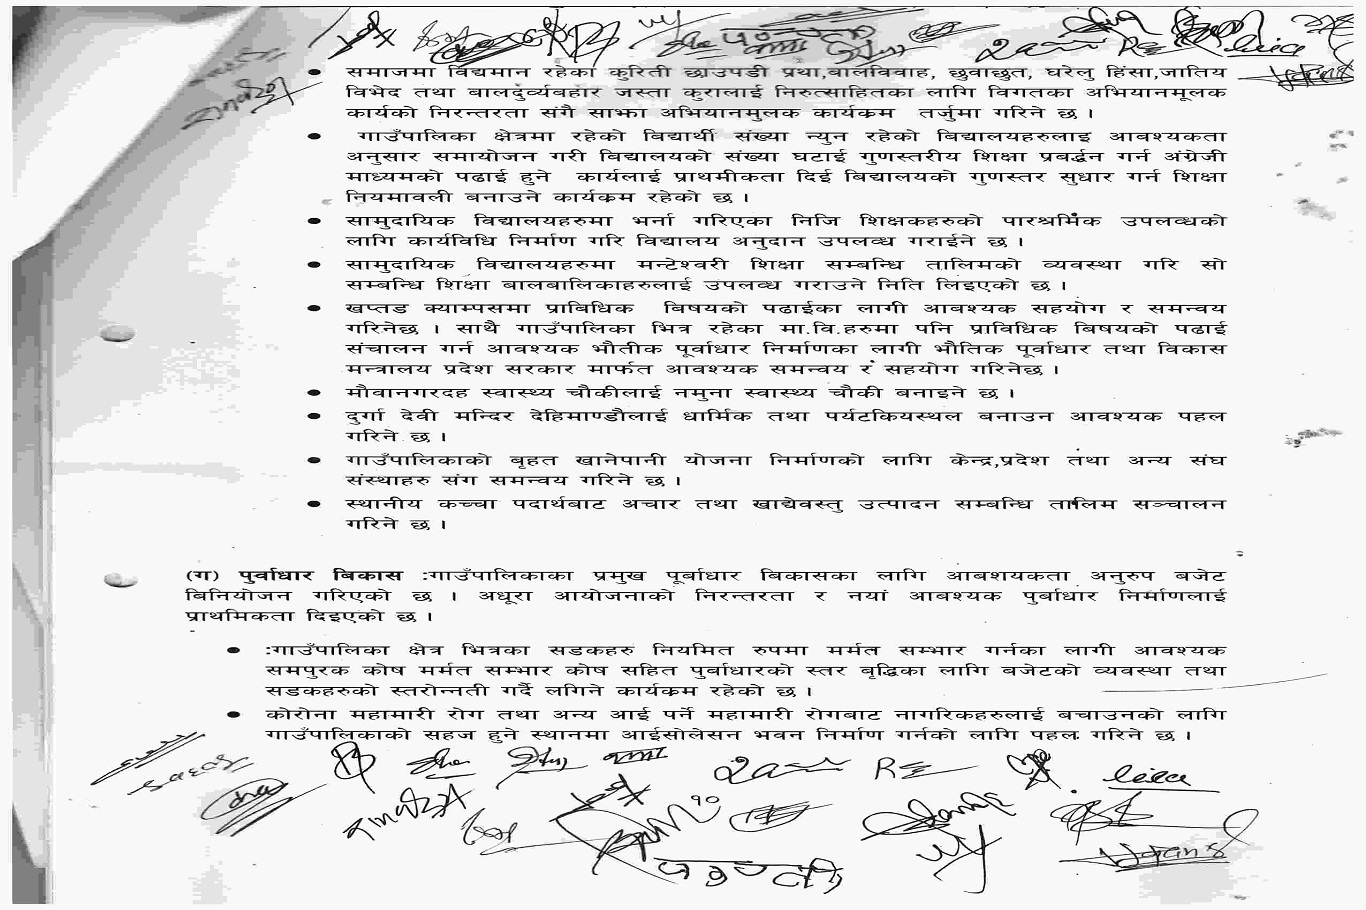 • समाजमा विद्यमान रहेका कुरिती छाउपडी प्रथा,बालविवाह, छुवाछुत, घरेलु हिंसा,जातिय
विभेद तथा बालदुर्व्यवहार जस्ता कुरालाई निरुत्साहितका लागि विगतका अभियानमूलक
कार्यको निरन्तरता संगै साझा अभियानमुलक कार्यक्रम तर्जुमा गरिने छ ।
• गाउँपालिका क्षेत्रमा रहेको विद्यार्थी संख्या न्युन रहेको विद्यालयहरुलाइ आबश्यकता
अनुसार समायोजन गरी विद्यालयको संख्या घटाई गुणस्तरीय शिक्षा प्रबर्द्धन गर्न अंग्रेजी
माध्यमको पढाई हुने कार्यलाई प्राथमीकता दिई बिद्यालयको गुणस्तर सुधार गर्न शिक्षा
नियमावली बनाउने कार्यक्रम रहेको छ ।
• सामुदायिक विद्यालयहरुमा भर्ना गरिएका निजि शिक्षकहरुको पारश्रमिक उपलब्धको
लागि कार्यविधि निर्माण गरि विद्यालय अनुदान उपलब्ध गराईने छ ।
• सामुदायिक विद्यालयहरुमा मन्टेश्वरी शिक्षा सम्बन्धि तालिमको व्यवस्था गरि सो
सम्बन्धि शिक्षा बालबालिकाहरुलाई उपलब्ध गराउने निति लिइएको छ ।
• खप्तड क्याम्पसमा प्राबिधिक बिषयको पढाईका लागी आबश्यक सहयोग र समन्वय
गरिनेछ । साथै गाउँपालिका भित्र रहेका मा.बि.हरुमा पनि प्राविधिक बिषयको पढाई
संचालन गर्न आवश्यक भौतीक पूर्वाधार निर्माणका लागी भौतिक पूर्वाधार तथा विकास
मन्त्रालय प्रदेश सरकार मार्फत आवश्यक समन्वय र सहयोग गरिनेछ ।
• मौवानगरदह स्वास्थ्य चौकीलाई नमुना स्वास्थ्य चौकी बनाइने छ ।
• दुर्गा देवी मन्दिर देहिमाण्डौलाई धार्मिक तथा पर्यटकियस्थल बनाउन आवश्यक पहल
गरिने छ ।
• गाउँपालिकाको बृहत खानेपानी योजना निर्माणको लागि केन्द्र,प्रदेश तथा अन्य संघ
संस्थाहरु संग समन्वय गरिने छ ।
• स्थानीय कच्चा पदार्थबाट अचार तथा खाद्येवस्तु उत्पादन सम्बन्धि तालिम सञ्चालन
गरिने छ ।
(ग) पुर्वाधार बिकास :गाउँपालिकाका प्रमुख पूर्बाधार बिकासका लागि आबशयकता अनुरुप बजेट
बिनियोजन गरिएको छ । अधूरा आयोजनाको निरन्तरता र नयां आबश्यक पुर्बाधार निर्माणलाई
प्राथमिकता दिइएको छ ।
• :गाउँपालिका क्षेत्र भित्रका सडकहरु नियमित रुपमा मर्मत सम्भार गर्नका लागी आवश्यक
समपुरक कोष मर्मत सम्भार कोष सहित पुर्बाधारको स्तर बृद्धिका लागि बजेटको व्यवस्था तथा
सडकहरुको स्तरोन्नती गर्दै लगिने कार्यक्रम रहेको छ ।
• कोरोना महामारी रोग तथा अन्य आई पर्ने महामारी रोगबाट नागरिकहरुलाई बचाउनको लागि
गाउँपालिकाको सहज हुने स्थानमा आईसोलेसन भवन निर्माण गर्नको लागि पहल गरिने छ ।